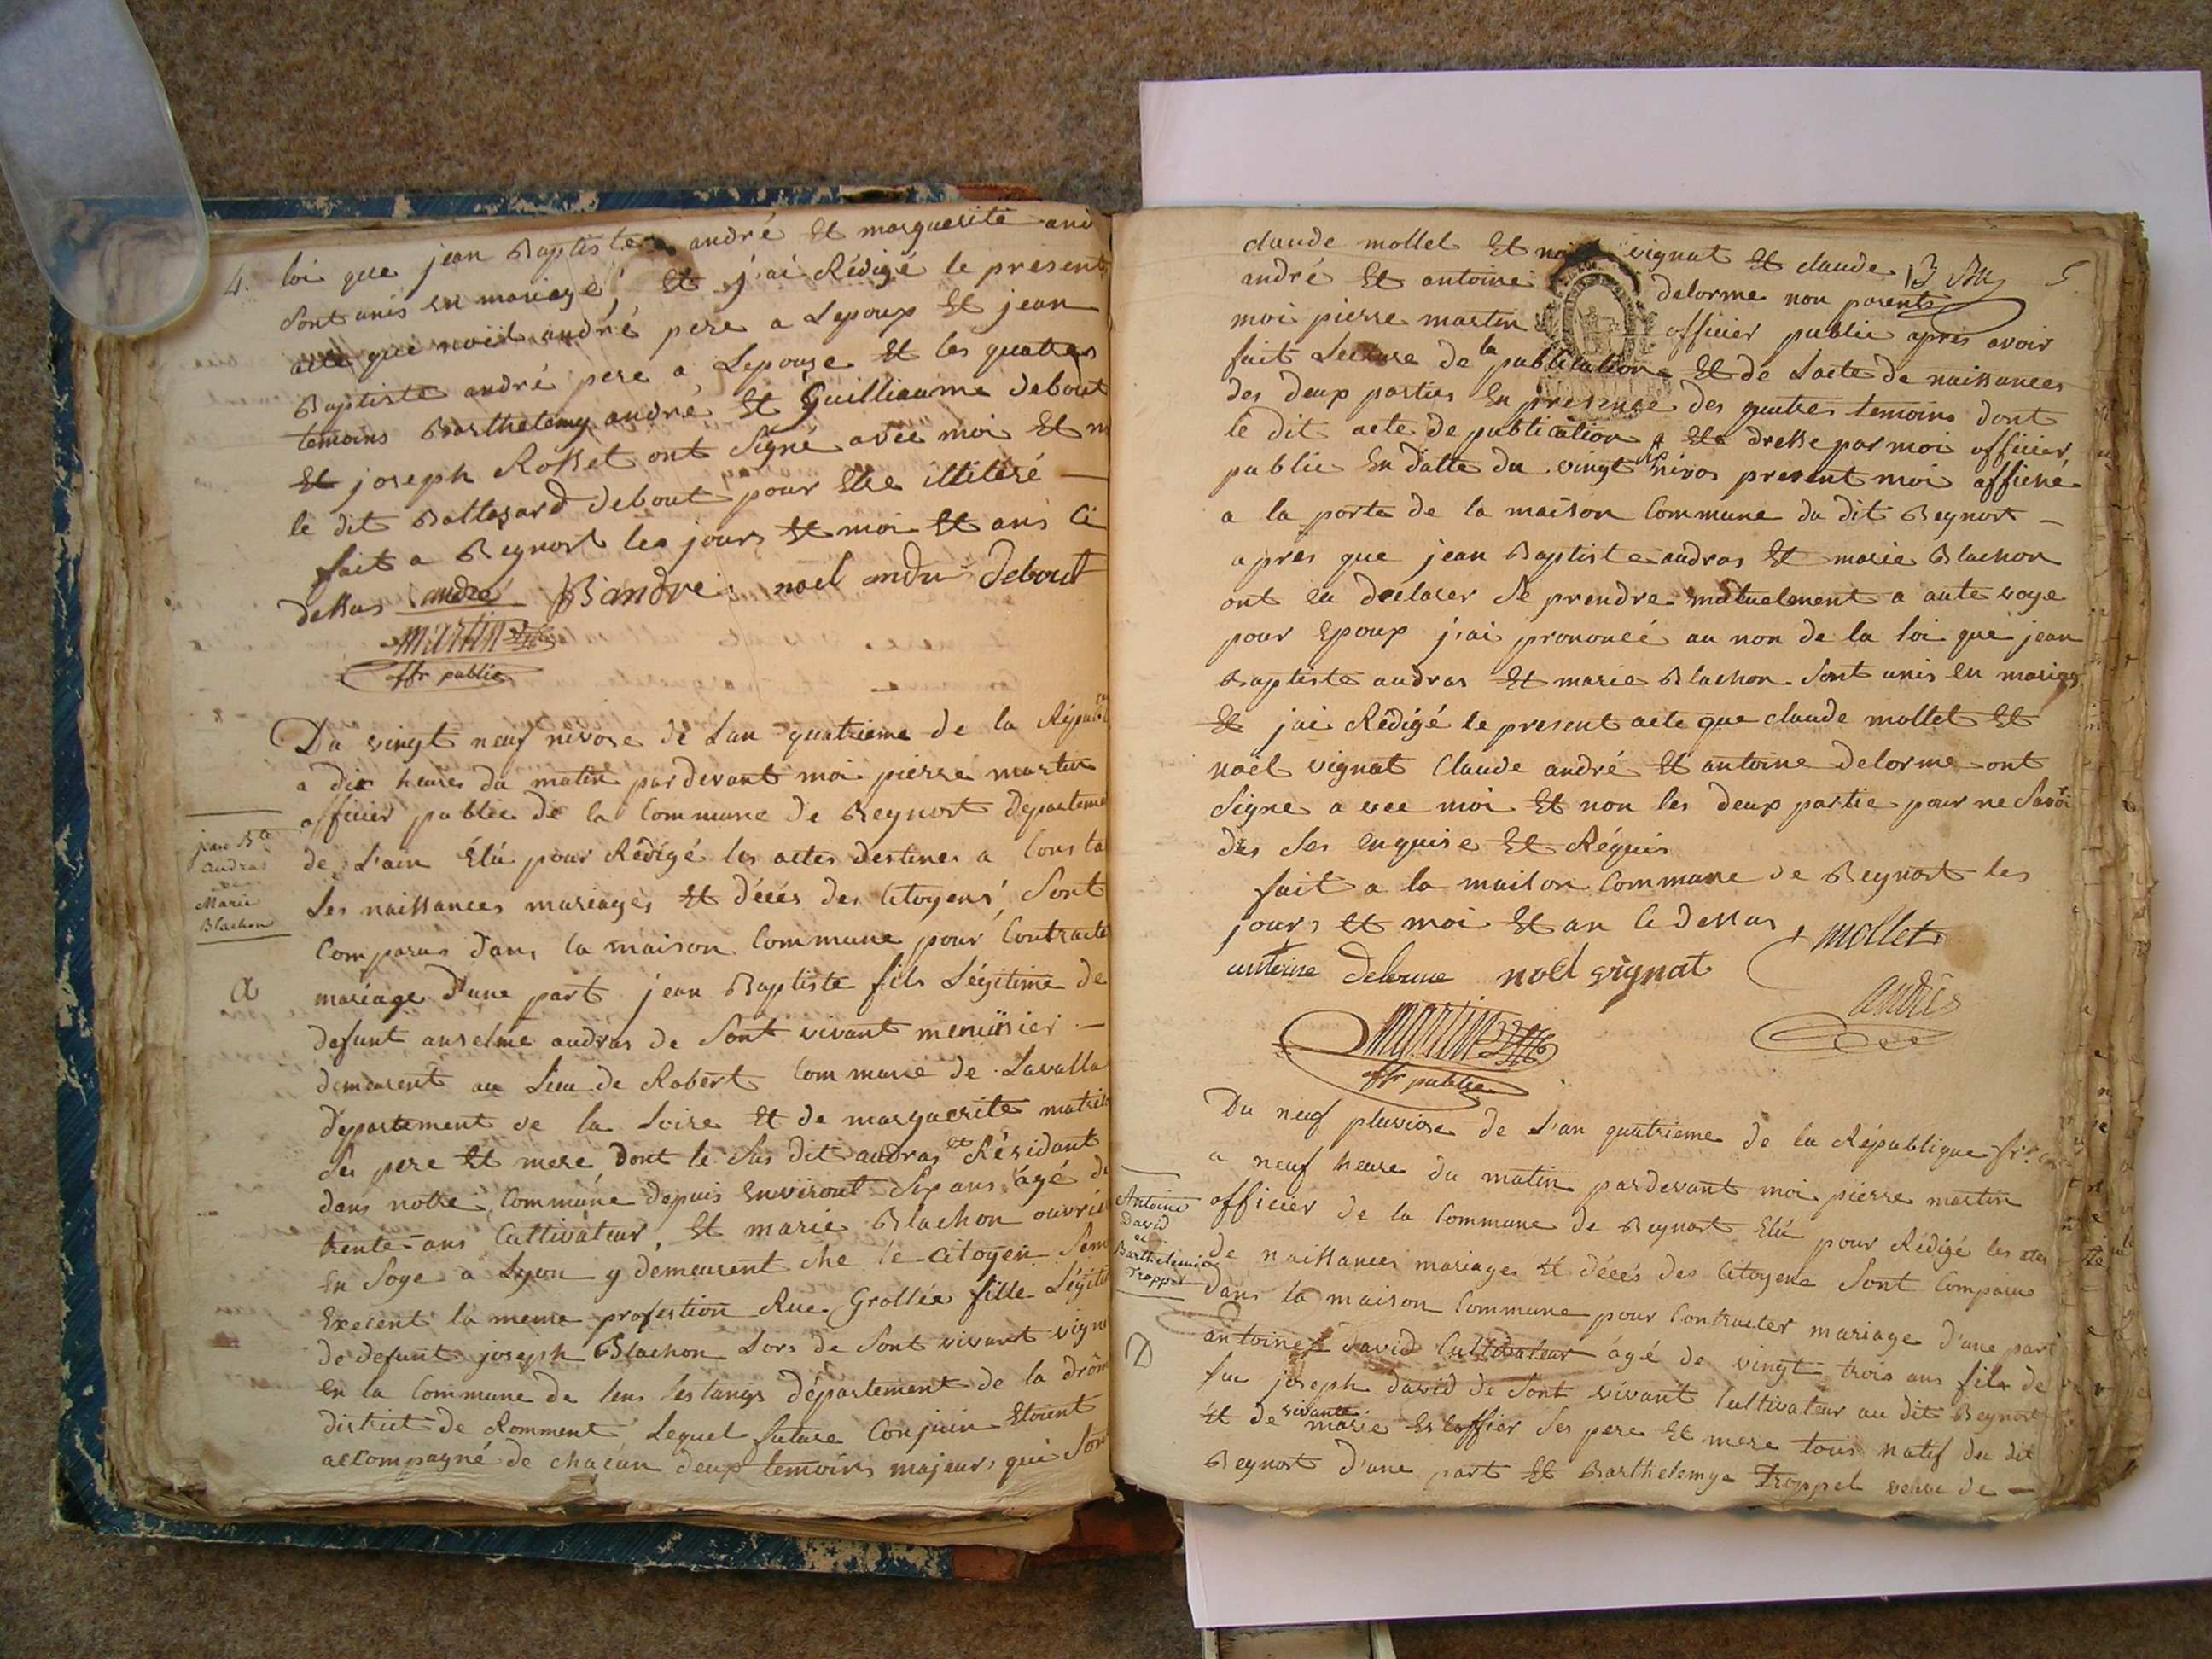 4. loi que jean Baptiste andré Et marguerite and
sont unis en mariage, Et j'ai Rédigé le present
acte que noël andré pere a Lepoux Et jean
Baptiste andré pere a Lepouse Et les quatres
temoins Barthelemy andré Et Guilliaume debout
Et joseph Rosset ont signé avec moi Et n
le dit Baltasard debout pour Etre illiteré —
fait a Beynost les jours Et moi Et ans Ci
dessus andré B andré noel andre debout
martin
offr public
Du vingt neuf nivose de Lan quatrieme de la Répub
a dix heures du matin pardevant moi pierre martin
officier public de la Commune de Beynost departeme
jean Bte
andras
Marie
Blachon
de L'ain Elû pour Rédigé les actes destines a Consta
Les naissances mariages Et décés des Citoyens, Sont
Comparus dans la maison Commune pour Contracte
a
mariage d'une part jean Baptiste fils Légitime de
defunt anselme audras de Sont vivant menuisier —
demeurent au Lieu de Robert Commune de Lavalla
département de la Loire Et de marguerite
Ses pere Et mere Dont le Sus dit audras et Résidant
dans notre Commune depuis Environt Six ans âgé de
trente ans Cultivateur, Et marie Blachon ouvrie
En Soye a Lyon y démeurent che le Citoyen
Execent la meme profestion Rue Grollée fille Légiti
de defunt joseph Blachon Lors de Sont vivant vigne
En la Commune de lens lestangs département de la drôm
district de Romment Lequel future Conjoin Etoient
accompagné de chacun deux temoins majeurs, qui Sont
claude mollet Et noël vignat Et claude 5
andré Et antoine delorme non parents
moi pierre martin officier public apres avoir
fait Lecture de la publication Et de Lacte de naissances
des deux parties En presence des quatres temoins dont
le dit acte de publication a Ete dresse par moi officier
public En datte du vingt nivos present moi affiché
a la porte de la maison Commune du dit Beynost —
apres que jean Baptiste audras Et marie Blachon
ont eu declarer Se prendre mutuelement a aute voye
pour Epoux j'ai prononcé au non de la loi que jean
Baptiste audras Et marie Blachon Sont unis en mariag
Et jai Rédigé le present acte que claude mollet Et
noël vignat Claude andré Et antoine delorme ont
Signe avec moi Et non les deux partie pour ne Savoi
des Ses enquise Et Réquis
fait a la maison Commune de Beynost les
jours et moi Et an Cidessus mollet
antoine delorme noel vignat
andré
martin
offr public
Du neuf pluviose de L'an quatrieme de la République fr
a neuf heure du matin pardevant moi pierre martin
Antoine
David
et
Barthelemie
Troppel
officier de la Commune de Beynost Elû pour Rédigé les actes
de naissances mariages Et décés des Citoyens Sont Comparus
dans la maison Commune pour Contracter mariage d'une part
D
antoine david Cultivateur âgé de vingt trois ans fils de
feu joseph david de Sont vivant Cultivateur au dit Beynost
Et de vivante marie Ses pere Et mere tous natif du dit
Beynost d'une part Et Barthelemye Troppel veuve de —